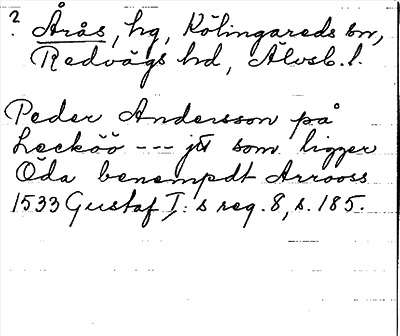 ? Årås, hg, Kölingareds sn,
Redvägs hd, Älvsb. l.
Peder Andersson på
Lecköö --- jtt som ligger
Öda benempdt Arrooss
1533 Gustaf I: s reg. 8, s. 185.